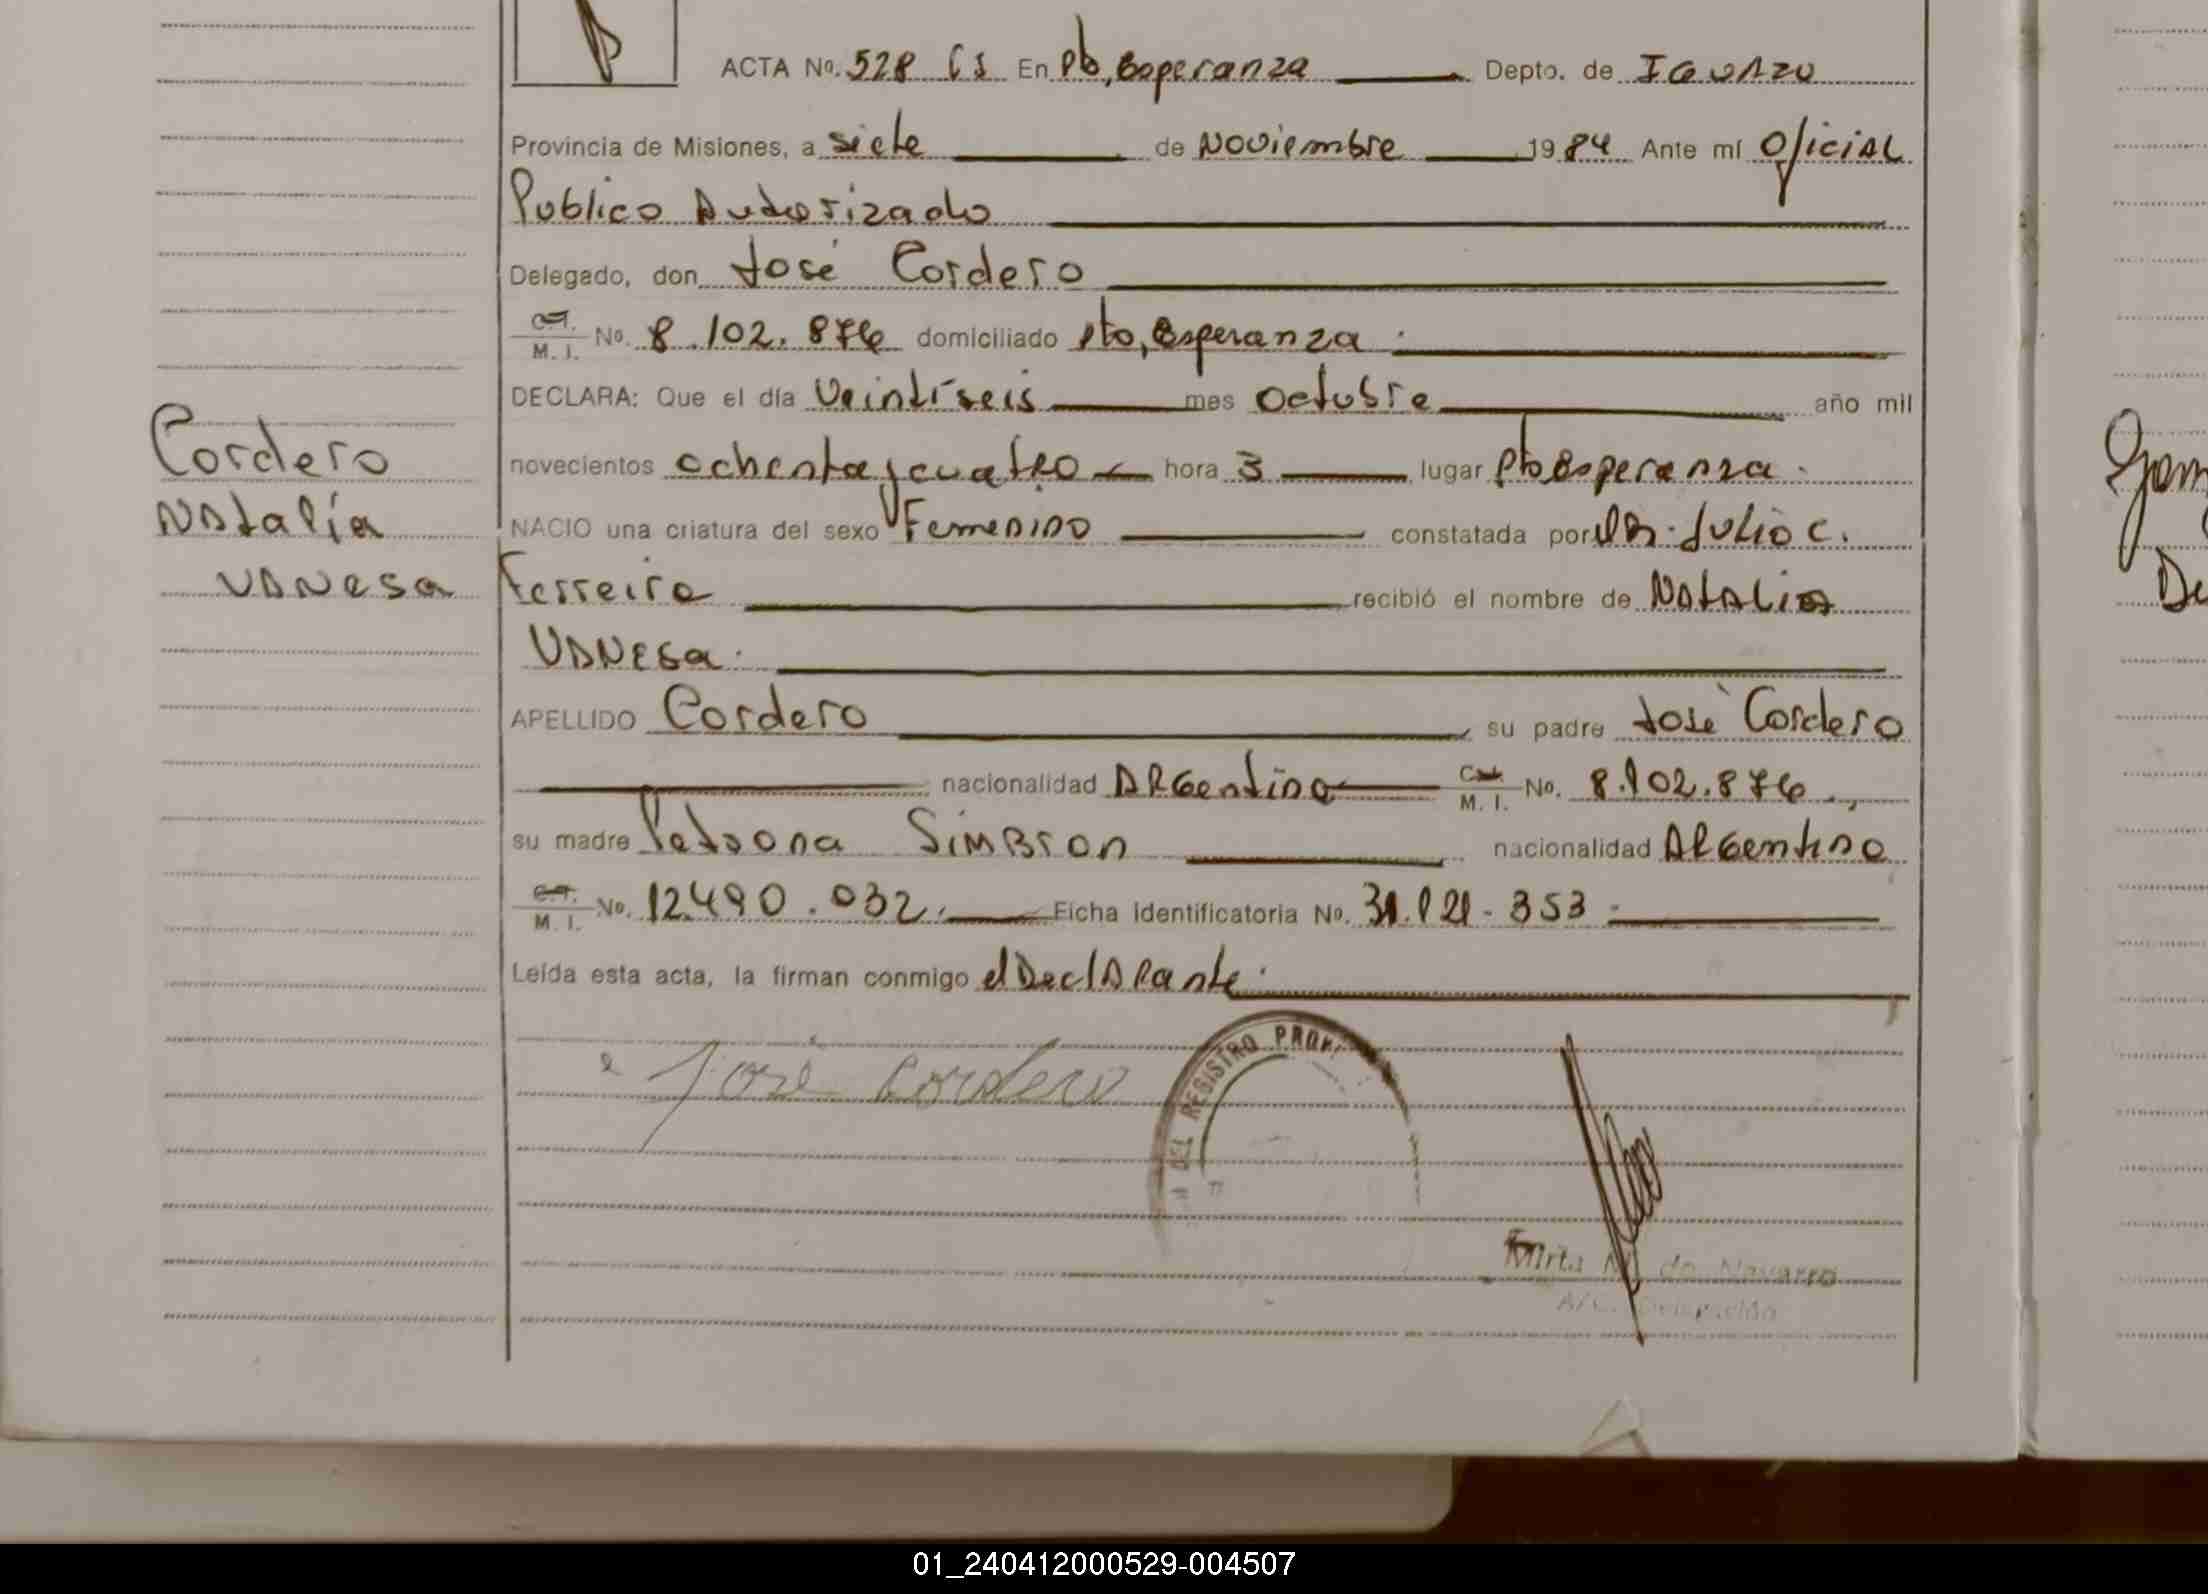 ACTA No. 528 CS En Pto, Esperanza Depto. de IGUAZU
Provincia de Misiones, a siete de Noviembre 1984 Ante mí Oficial
Publico Autorizado
Delegado, don José Cordero
C.I. M. I. No. 8.102.876 domiciliado Pto, Esperanza.
DECLARA: Que el día Veintíseis mes octubre año mil
novecientos ochenta y cuatro hora 3 lugar Pto Esperanza.
Cordero
Natalía
Vanesa
NACIO una criatura del sexo Femenino constatada por DR. Julio C.
Ferreira recibió el nombre de Natalia
Vanesa.
APELLIDO Cordero su padre José Cordero
nacionalidad Argentina M. I. No. 8.102.876
su madre Petrona Simbron nacionalidad Argentina
C.I. M. I. No. 12.490.032. Ficha Identificatoria No. 31.121.353
Leída esta acta, la firman conmigo el Declarante.
José Cordero
DEL REGISTRO PROV
Mirta de Navarro
Delegación
01_240412000529-004507